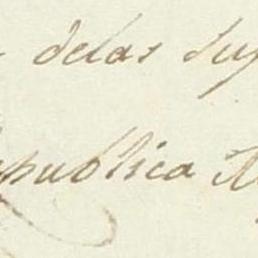 delas Sup
epublica